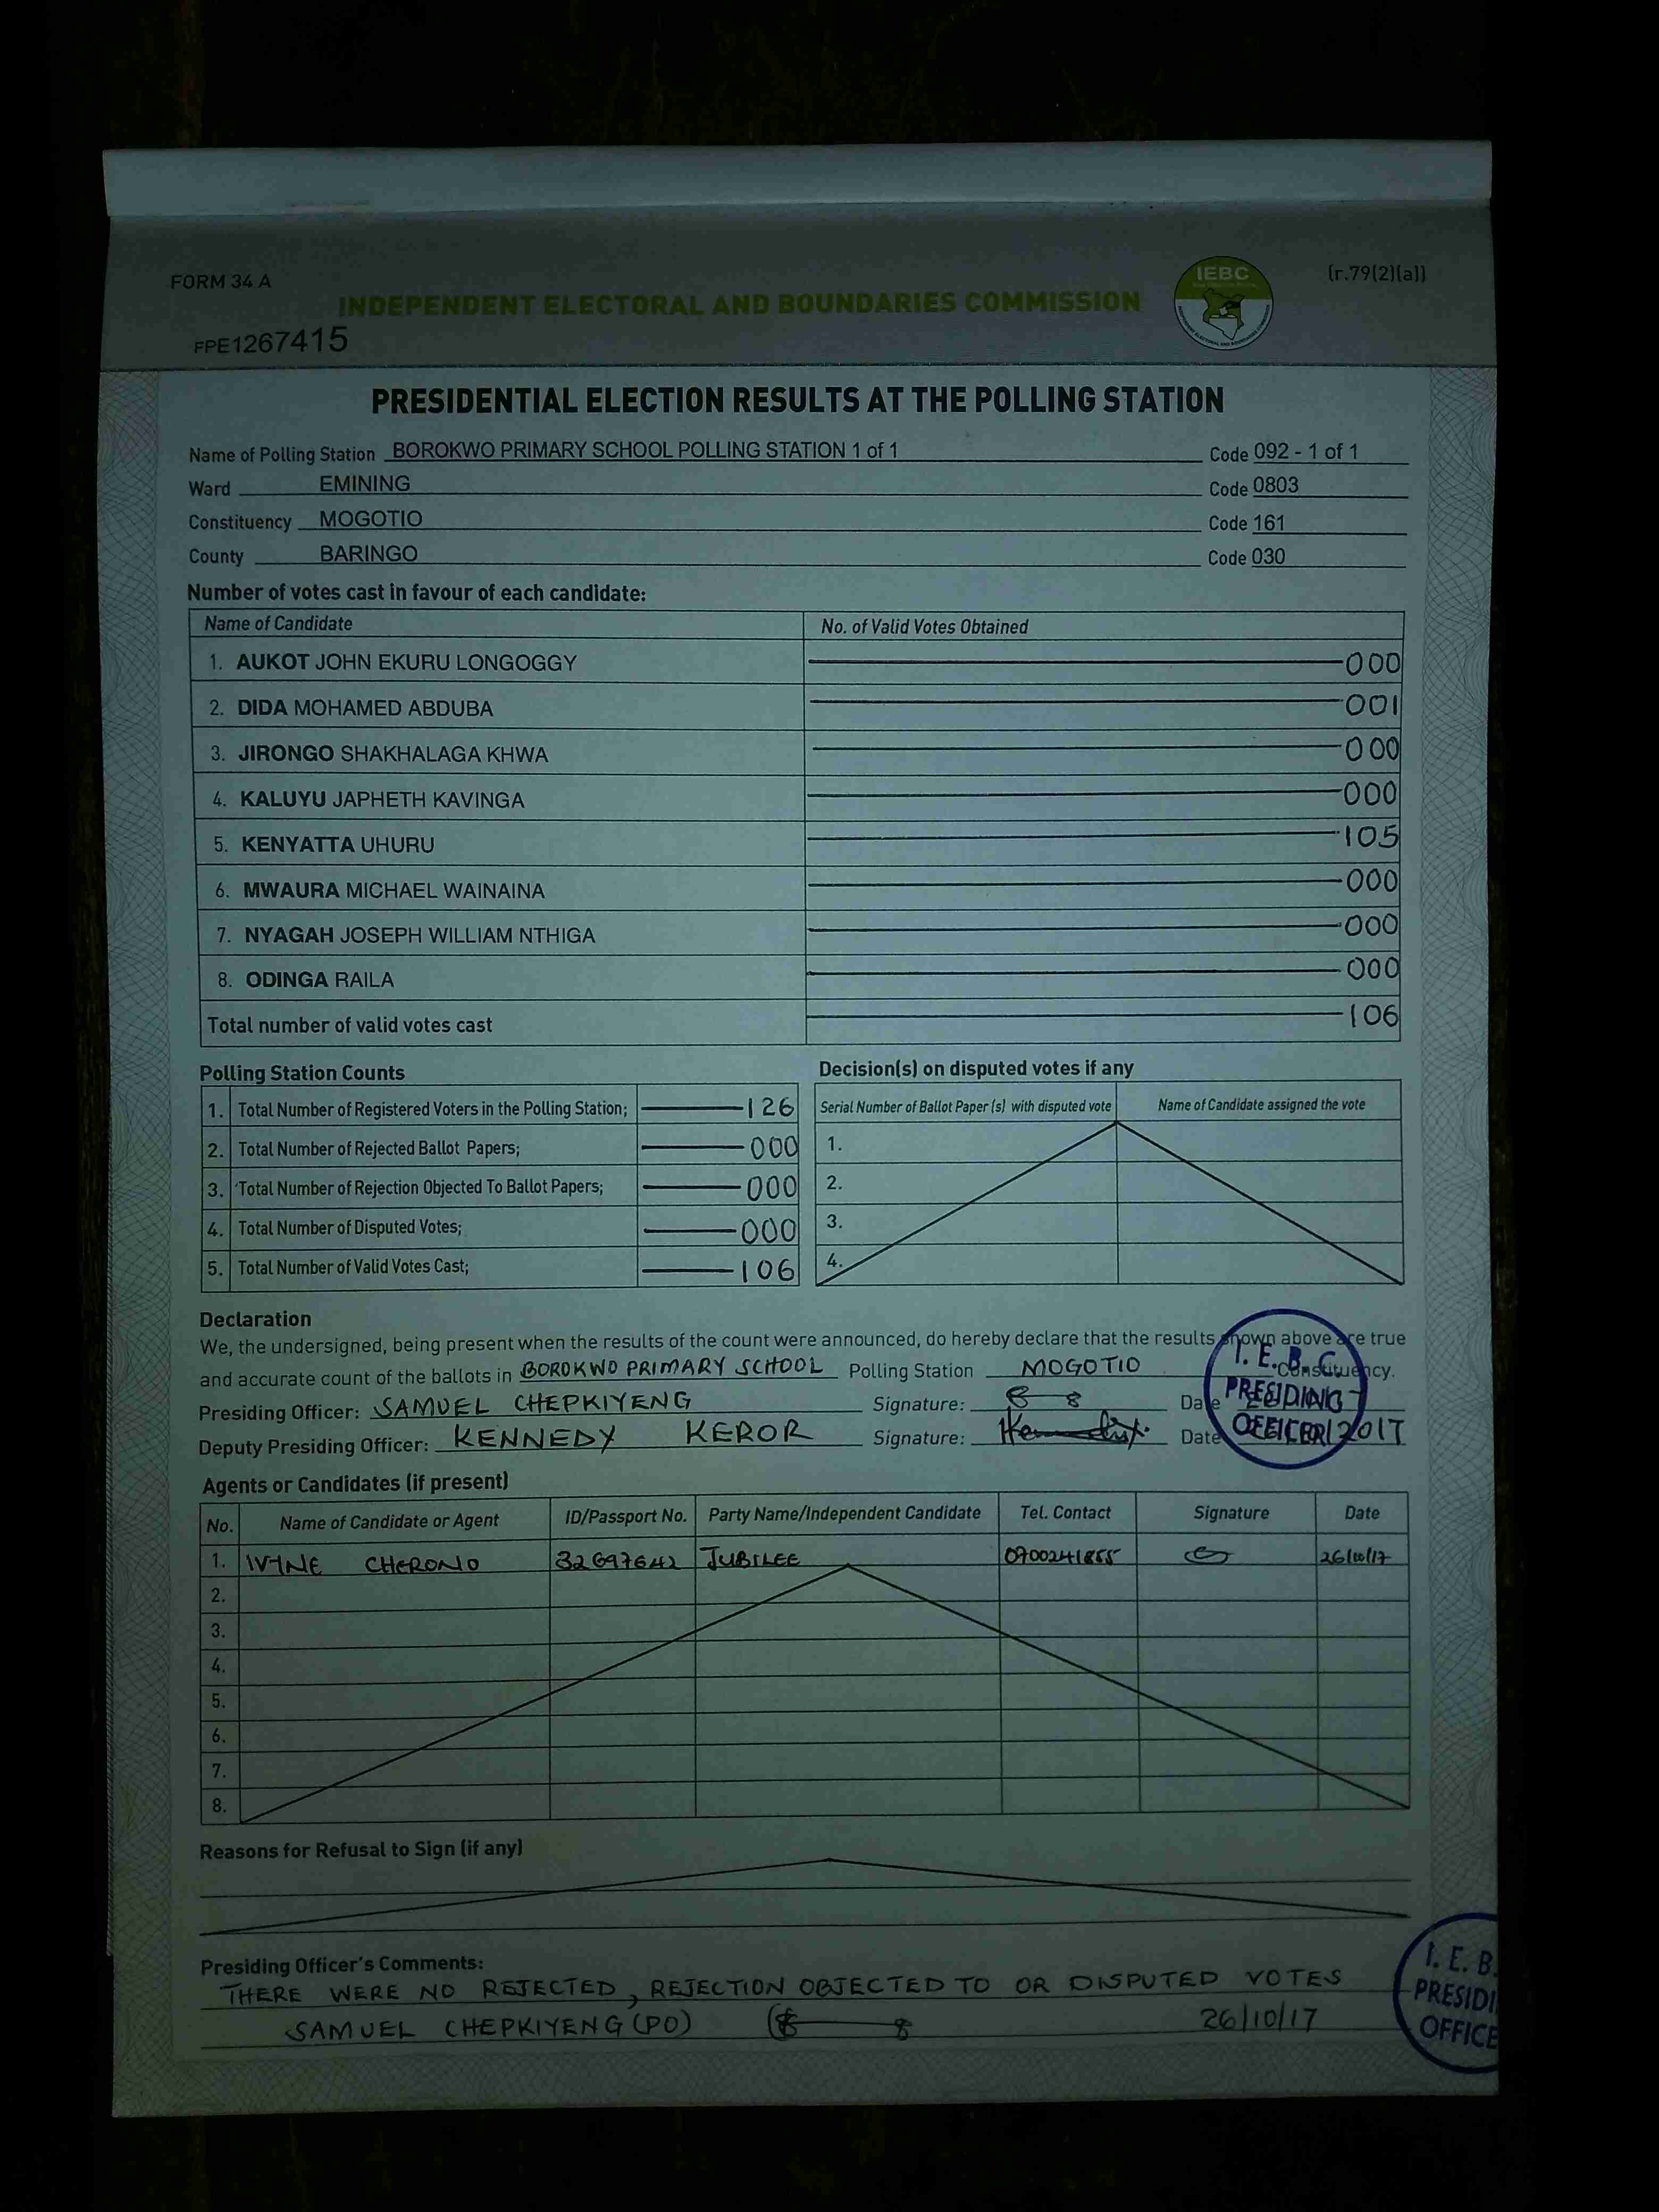 FORM 34 A
(r.79(2)(a))
IEBC
INDEPENDENT ELECTORAL AND BOUNDARIES COMMISSION
FPE1267415
PRESIDENTIAL ELECTION RESULTS AT THE POLLING STATION
Name of Polling Station BOROKWO PRIMARY SCHOOL POLLING STATION 1 of 1 Code 092 - 1 of 1
Ward EMINING Code 0803
Constituency MOGOTIO Code 161
County BARINGO Code 030
Number of votes cast in favour of each candidate:
Name of Candidate No. of Valid Votes Obtained
1. AUKOT JOHN EKURU LONGOGGY 000
2. DIDA MOHAMED ABDUBA 001
3. JIRONGO SHAKHALAGA KHWA 000
4. KALUYU JAPHETH KAVINGA 000
5. KENYATTA UHURU 105
6. MWAURA MICHAEL WAINAINA 000
7. NYAGAH JOSEPH WILLIAM NTHIGA 000
8. ODINGA RAILA 000
Total number of valid votes cast 106
Polling Station Counts
1. Total Number of Registered Voters in the Polling Station; 126
2. Total Number of Rejected Ballot Papers; 000
3. Total Number of Rejection Objected To Ballot Papers; 000
4. Total Number of Disputed Votes; 000
5. Total Number of Valid Votes Cast; 106
Decision(s) on disputed votes if any
Serial Number of Ballot Paper (s) with disputed vote Name of Candidate assigned the vote
1.
2.
3.
4.
Declaration
We, the undersigned, being present when the results of the count were announced, do hereby declare that the results shown above are true
and accurate count of the ballots in BOROKWO PRIMARY SCHOOL Polling Station MOGOTIO Constituency.
Presiding Officer: SAMUEL CHEPKIYENG Signature: Date
Deputy Presiding Officer: KENNEDY KEROR Signature: Date 2017
I. E. B. C.
PRESIDING
OFFICER
Agents or Candidates (if present)
No. Name of Candidate or Agent ID/Passport No. Party Name/Independent Candidate Tel. Contact Signature Date
1. CHERONO 32697642 JUBILEE 0700241855 26/10/17
2.
3.
4.
5.
6.
7.
8.
Reasons for Refusal to Sign (if any)
Presiding Officer's Comments:
THERE WERE NO REJECTED, REJECTION OBJECTED TO OR DISPUTED VOTES
SAMUEL CHEPKIYENG (PO) 26/10/17
I. E. B.
PRESIDI
OFFICE